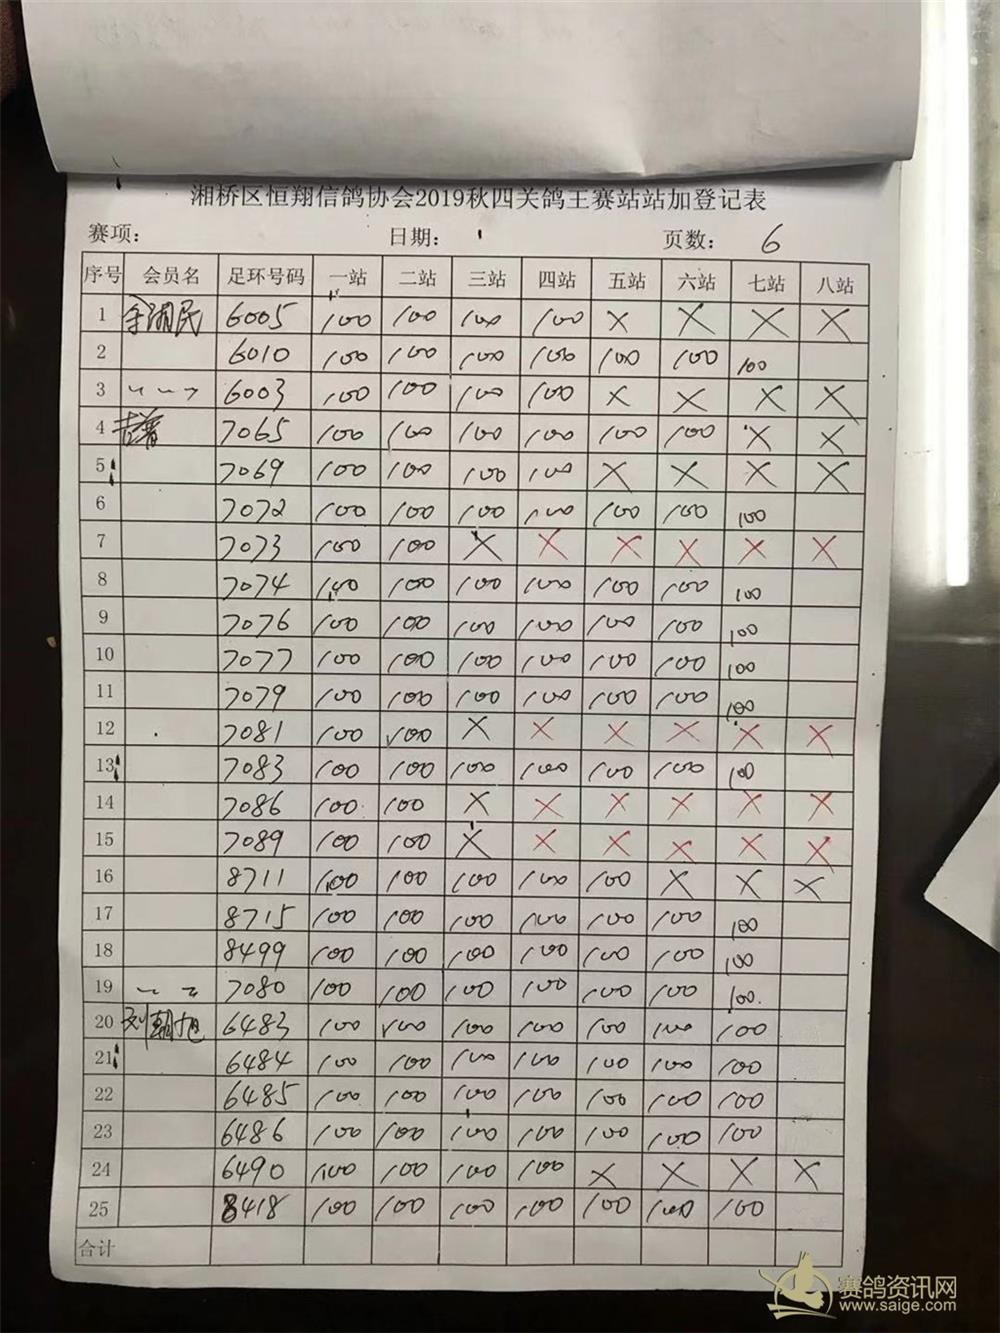 湘桥区恒翔信鸽协会2019秋四关鸽王赛站站加登记表
赛项: 日期: 页数: 6
序号 会员名 足环号码 一站 二站 三站 四站 五站 六站 七站 八站
1 余湘民 6005 100 100 100 100 X X X X
2 6010 100 100 100 100 100 100 100
3 6003 100 100 100 100 X X X X
4 7065 100 100 100 100 100 100 X X
5 7069 100 100 100 100 X X X X
6 7072 100 100 100 100 100 100 100
7 7073 100 100 X X X X X X
8 7074 100 100 100 100 100 100 100
9 7076 100 100 100 100 100 100 100
10 7077 100 100 100 100 100 100 100
11 7079 100 100 100 100 100 100 100
12 7081 100 100 X X X X X X
13 7083 100 100 100 100 100 100 100
14 7086 100 100 X X X X X X
15 7089 100 100 X X X X X X
16 8711 100 100 100 100 100 X X X
17 8715 100 100 100 100 100 100 100
18 8499 100 100 100 100 100 100 100
19 7080 100 100 100 100 100 100 100.
20 刘朝旭 6483 100 100 100 100 100 100 100
21 6484 100 100 100 100 100 100 100
22 6485 100 100 100 100 100 100 100
23 6486 100 100 100 100 100 100 100
24 6490 100 100 100 100 X X X X
25 8418 100 100 100 100 100 100 100
合计
赛鸽资讯网
www.saige.com